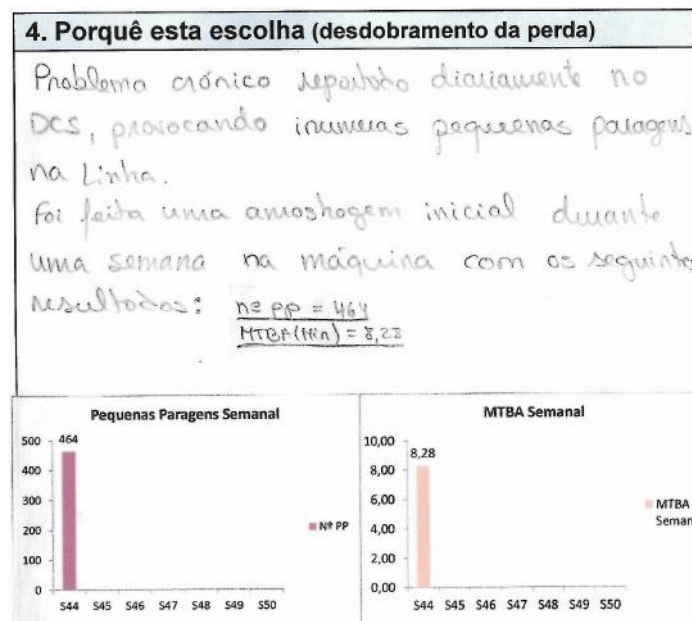 4. Porquê esta escolha (desdobramento da perda)
Problema crónico reportado diariamente no
DCS, provocando inumeras pequenas paragens
na Linha.
Foi feita uma amostragem inicial durante
uma semana na máquina com os seguintes
resultados: nº PP = 464
MTBA(Min) = 8,28
Pequenas Paragens Semanal
500
400
300
200
100
0
464
S44 S45 S46 S47 S48 S49 S50
Nº PP
MTBA Semanal
10,00
8,00
6,00
4,00
2,00
0,00
8,28
S44 S45 S46 S47 S48 S49 S50
MTBA
Seman